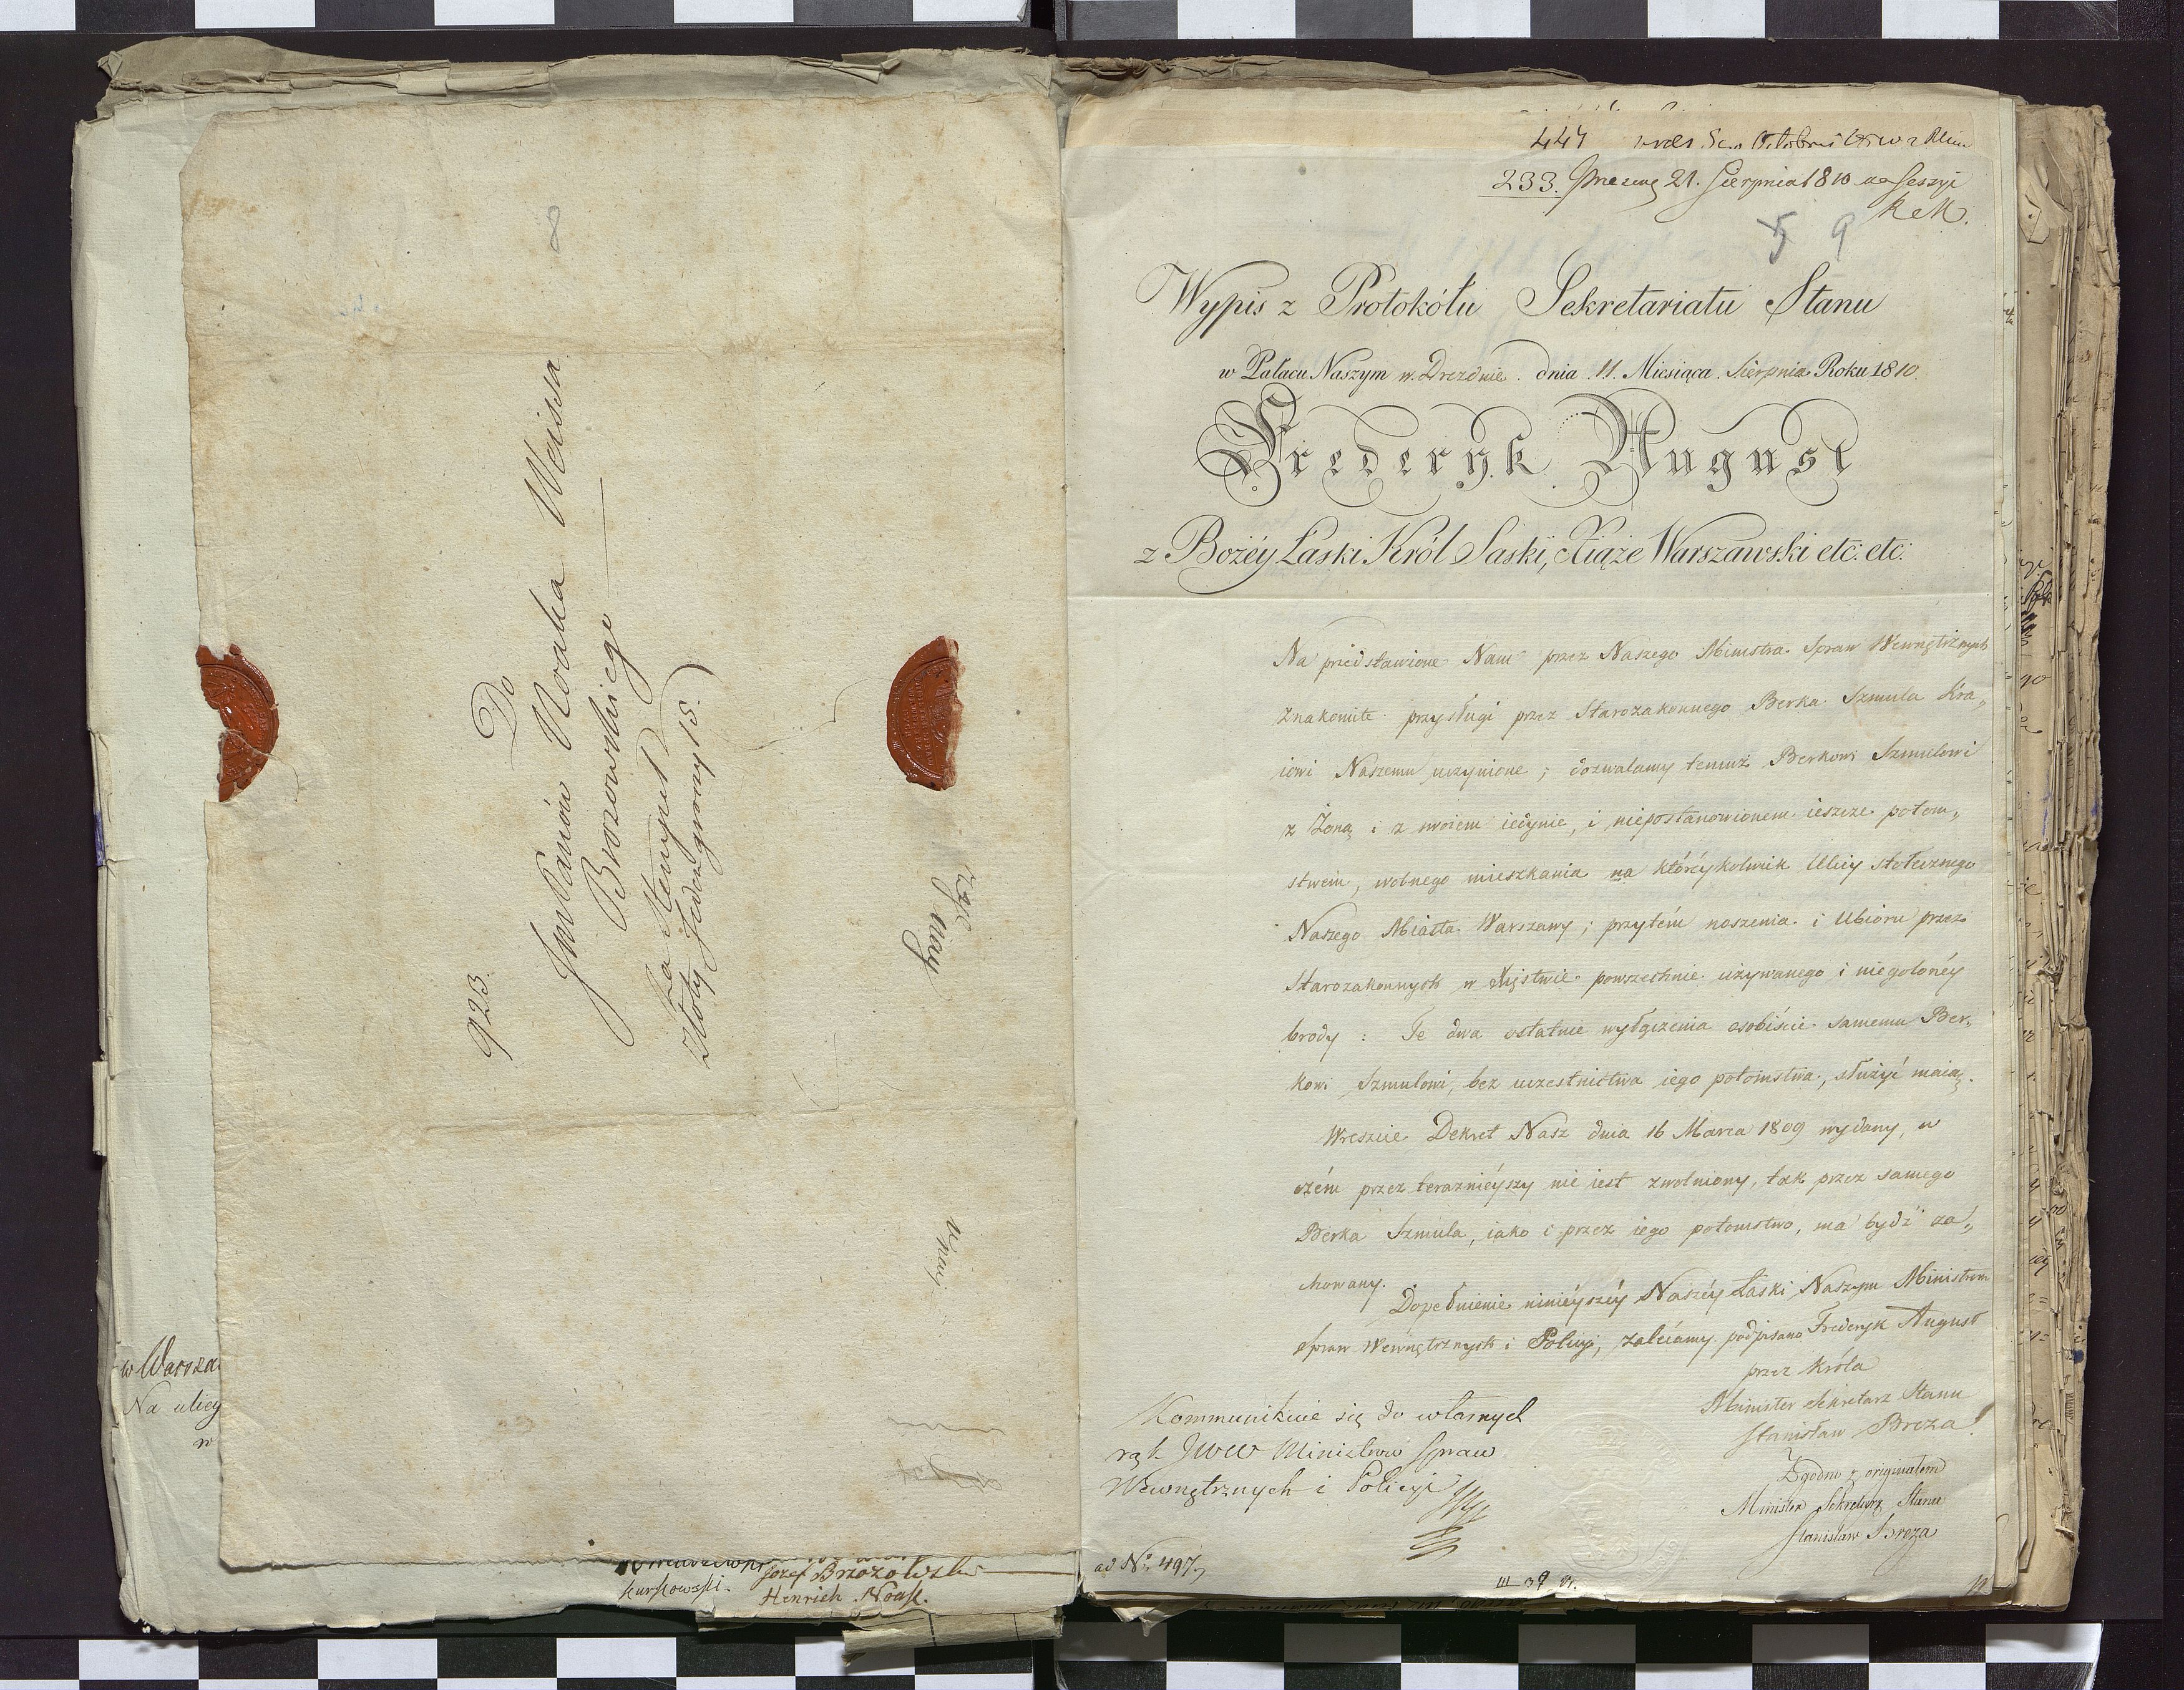 8
923.
Do
JmPanów Noaka Weissa
Brozowskiego
Za Stempel
złoty Jeden groszy 15.
w Warsza
Na ulicy
w
Kurkowski
Jozef Brzozowski
Henrich Noak.
447
233. Praesens 21. Sierpnia 1810 na Sessyi
5 9
Wypis z Protokółu Sekretariatu Stanu
w Pałacu Naszym w Dreznie dnia 11. Miesiąca Sierpnia Roku 1810.
Fryderyk August
z Bożéy Łaski Król Saski, Xiąże Warszawski etc: etc:
Na przedstawione Nam przez Naszego Ministra Spraw Wewnętrznych
znakomite przysługi przez Starozakonnego Berka Szmula Kra„
iowi Naszemu uczynione; dozwalamy temuż Berkowi Szmulowi
z Żoną i z swoiem iedynie, i niepostanowionem ieszcze potom„
stwem, wolnego mieszkania na któréykolwiek Ulicy stołecznego
Naszego Miasta Warszawy; przytém noszenia i Ubioru przez
Starozakonnych w Xięstwie powszechnie używanego i niegolonéy
brody: Te dwa ostatnie wyłączenia osobiście samemu Ber„
kowi Szmulowi, bez uczestnictwa iego potomstwa, służyć maią.
Wreszcie Dekret Nasz dnia 16 Marca 1809 wydany, w
czém przez teraznieyszy nie iest zwolniony, tak przez samego
Berka Szmula, iako i przez iego potomstwo, ma bydź za„
chowany.
Dopełnienie ninieyszéy Naszéy Łaski Naszym Ministrom
Spraw Wewnętrznych i Policyi, zalecamy. podpisano Frederyk August
przez Króla
Minister Sekretarz Stanu
Stanisław Breza
Kommunikuie się do własnych
rąk JWW Ministrów Spraw
Wewnętrznych i Policyi
Zgodno z originałem
Minister Sekretarz Stanu
Stanisław Breza
ad No. 497.